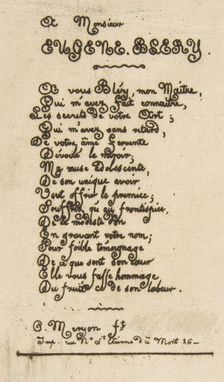 A Monsieur
EUGENE BLERY
A vous Bléry, mon Maître,
Qui m'avez fait connaître,
Les secrets de votre Art;
Qui m'avez sans retard,
De votre âme fervente
Dévoilé le miroir;
Ma muse adolescente,
De son unique avoir
Vient offrir le premice;
Souffrez qu'au frontispice,
De ce modeste don
En gravant votre nom;
Pour foible témoignage
De ce que sent son cœur
Elle vous fasse hommage
Du fruit de son labeur.
C. Meryon ft
Imp. rue Nve St Etienne du Mont 26